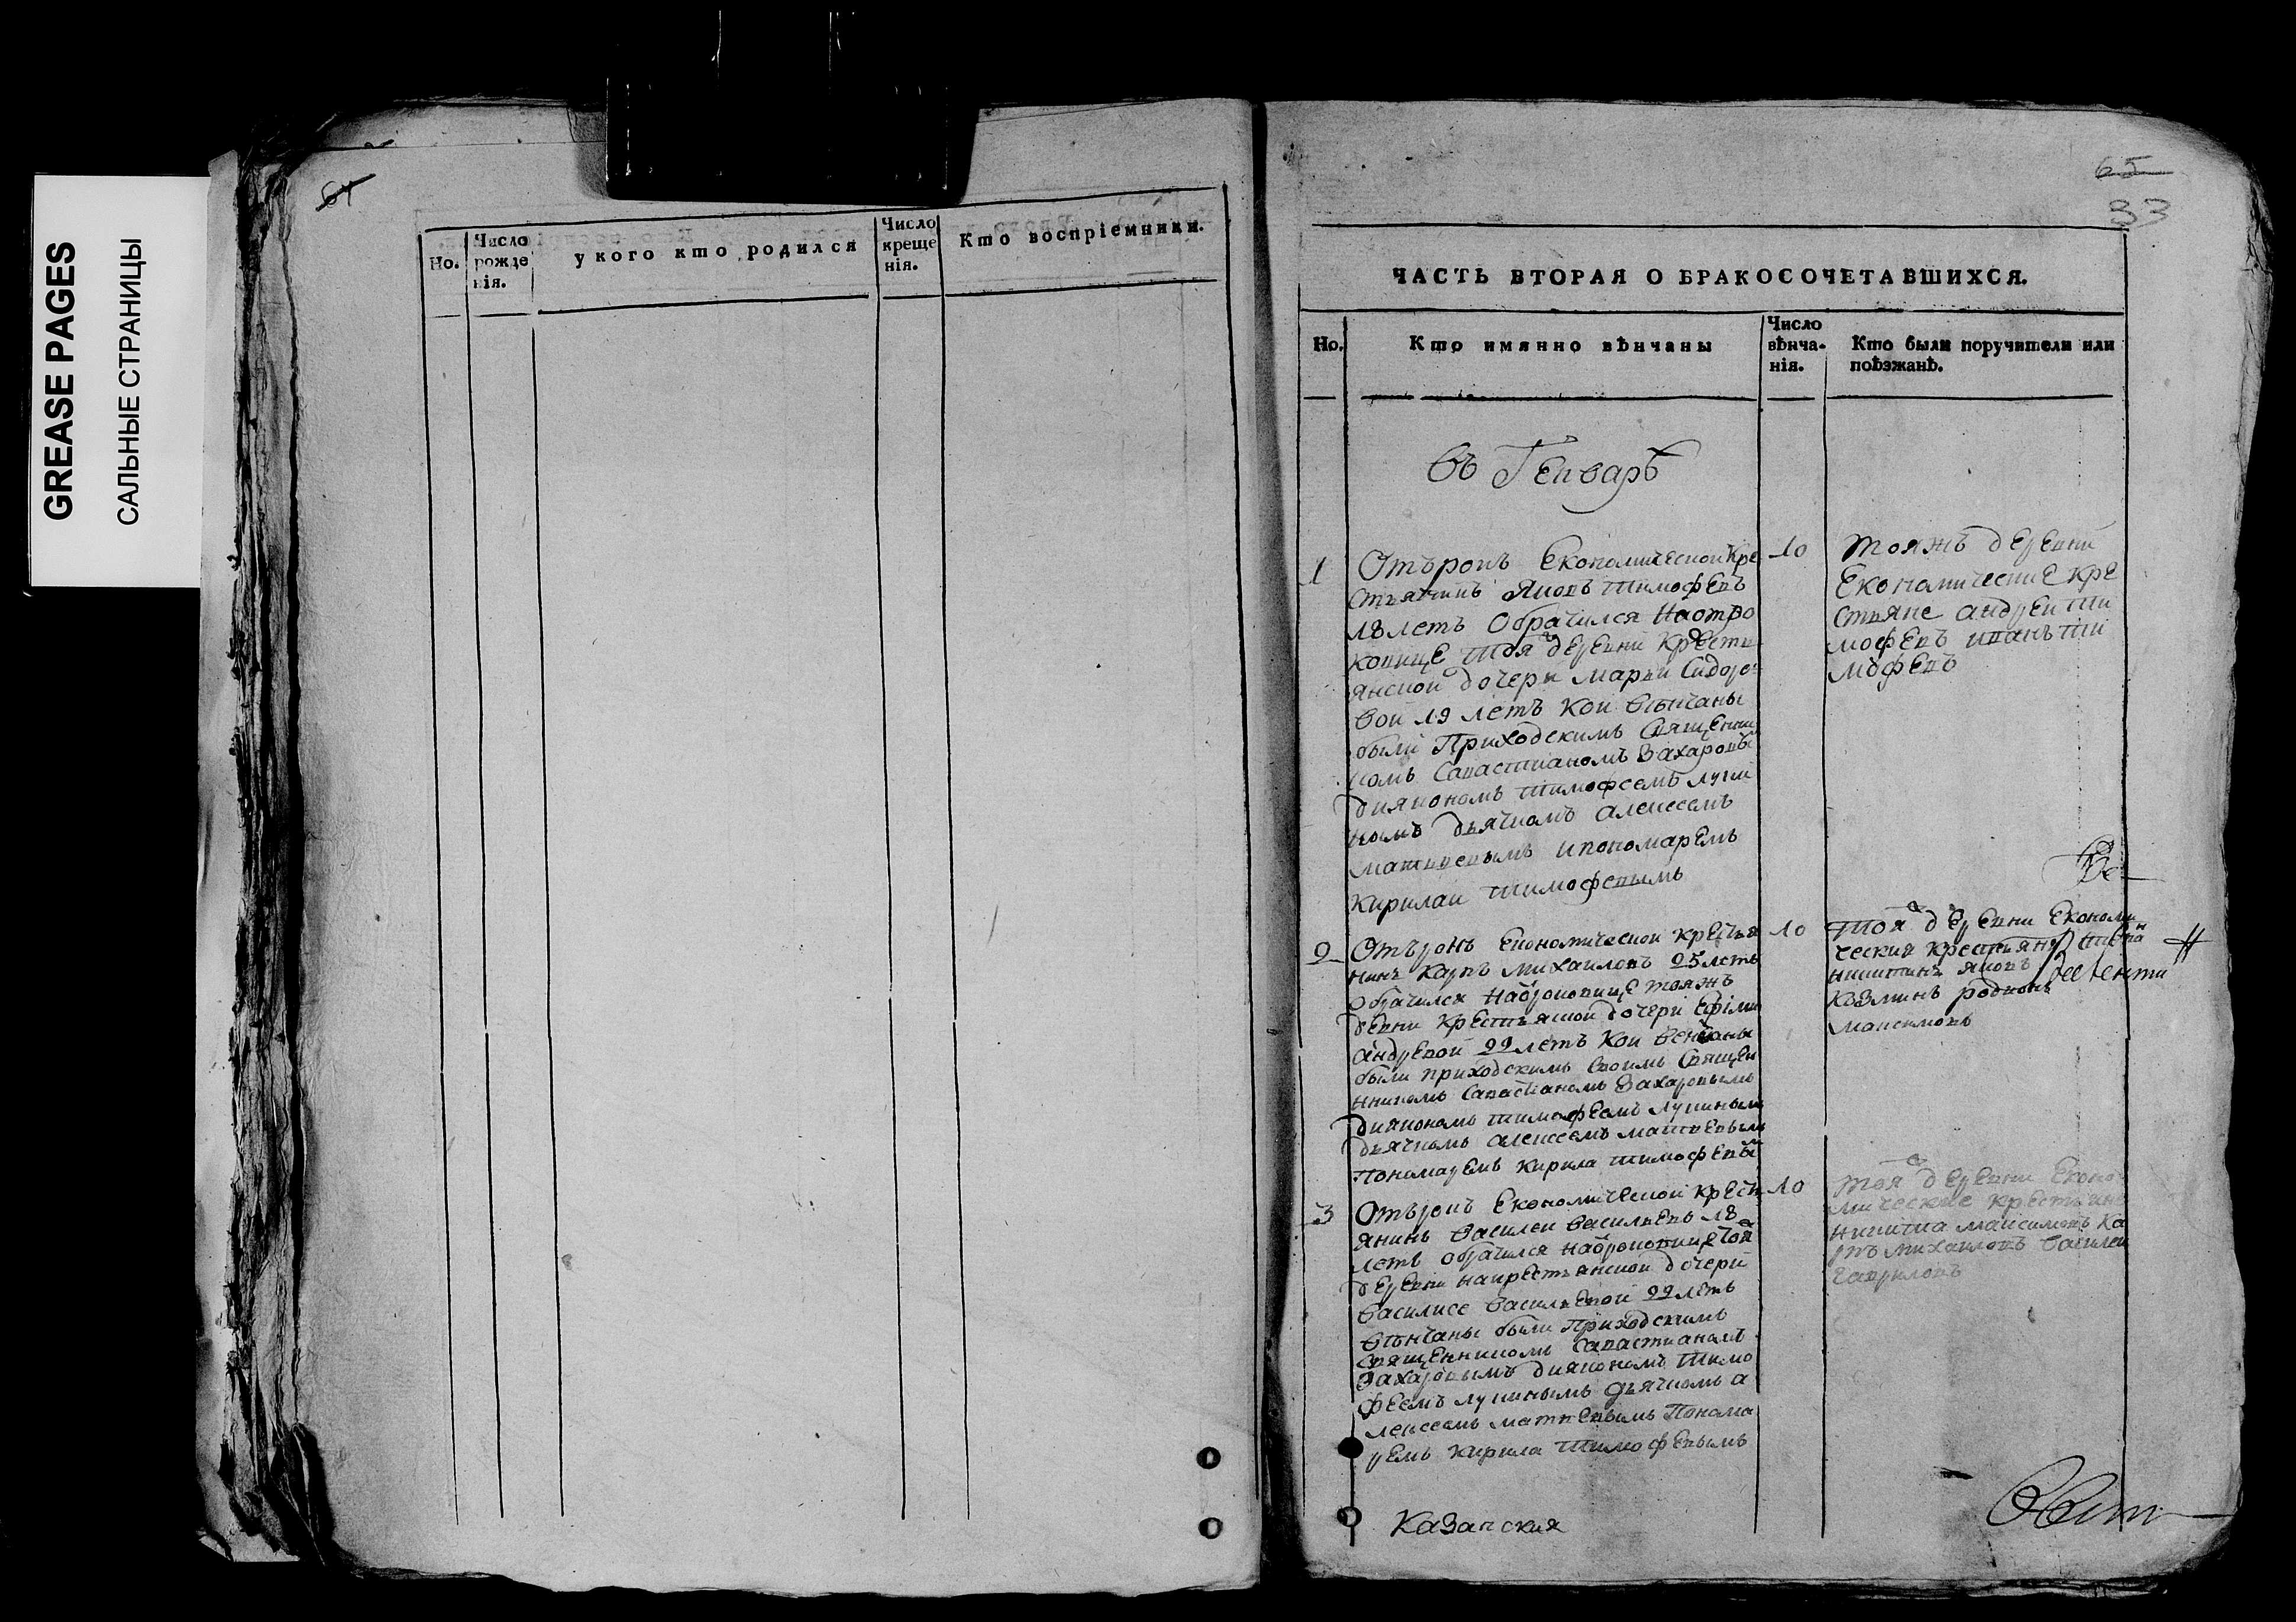 GREASE PAGES
САЛЬНЫЕ СТРАНИЦЫ
64
Но.
Число рожде нія.
у кого кто родился
Число креще нія.
Кто воспріемники.
65
33
ЧАСТЬ ВТОРАЯ О БРАКОСОЧЕТАВШИХСЯ.
Но.
Кто имянно вѣнчаны
Число вѣнча- нія.
Кто были поручители или поѣзжанѣ.
въ Генварѣ
1
Отърокъ Економической кре
стьянинъ Яковъ тимофѣвъ
18 летъ Обрачился Наотро
ковице тоя деревни Крестъ
янской дочери марьи Сидоро
вой 19 летъ кои вѣнчаны
были Приходскимъ Священни
комъ Савастианомъ Захаровы
дияконамъ тимофеемъ луки
нымъ дьячкомъ алексеемъ
матвеевымъ ипономаремъ
Кирилаи тимофевымъ
10
тояжъ деревни
Економические кре
стьяне андреи ти
мофевъ иванъ ти
мофевъ
2
Отърокъ економической крестья
нинъ Карпъ михаиловъ 25 летъ
обрачился наотроковице тояжъ
девни крестьяской дочери
андревой 22 летъ кои венчаны
были приходскимъ своимъ священ
нникомъ Савастианамъ Захаровымъ
дияконамъ тимофеемъ лукинымъ
дьячкомъ алексеемъ матвевымъ
Пономаремъ кирила тимофевы
10
тоя деревни Економи
ческия крестьяня
никитинъ яковъ
козминъ родионъ
максимовъ
3
Отърокъ Економической крестъ
янинъ Василеи Васильевъ 18
летъ обрачился наотроковице той
деревни накрестьянской дочери
василисе васильевой 22 летъ
вѣнчаны были Приходскимъ
священникомъ Савастианамъ
Захаровымъ дияконамъ тимо
феемъ лукинымъ дьячкомъ а
лексеемъ матвевымъ Понома
ремъ кирила тимофевымъ
10
тоя деревни Еконо
мические крестьяне
никитиа максимовъ Ка
рпъ михаиловъ василеи
гавриловъ
Казанския